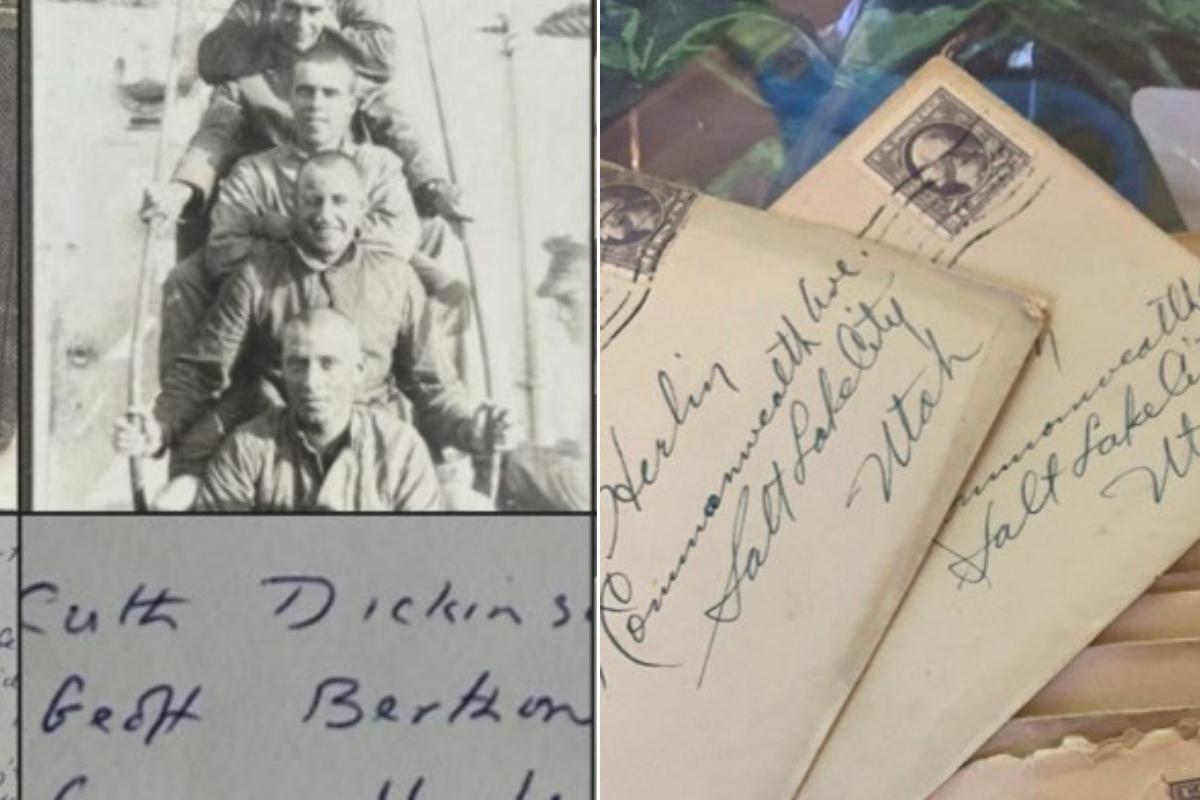 Dickins
Geoff Berthon
Herlin
Commonwealth Ave.
Salt Lake City
Utah
mmonwealth
Salt Lake Ci
Ut